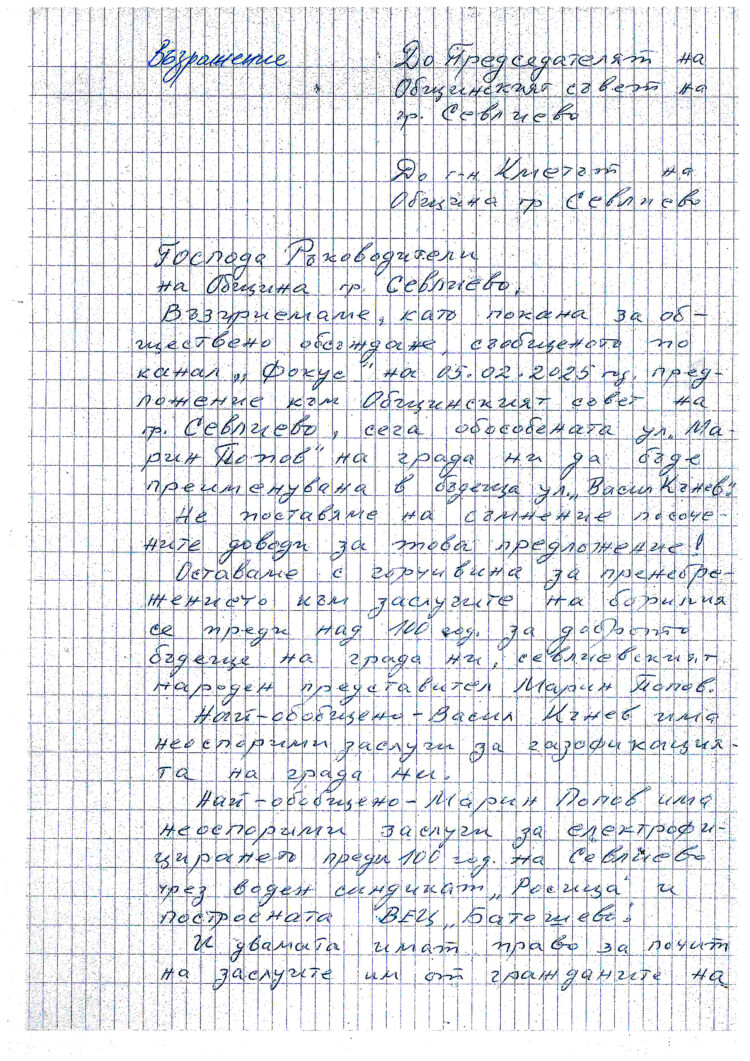 Възражение
До Председателят на
Общинският съвет на
гр. Севлиево
До г-н Кметът на
Община гр Севлиево
Господа Ръководители
на Община гр. Севлиево,
Възприемаме, като покана за об-
ществено обсъждане, съобщеното по
канал „Фокус" на 05.02.2025 год. пред-
ложение към Общинският совет на
гр. Севлиево, сега обособената ул. „Ма-
рин Попов" на града ни да бъде
преименувана в бъдеща ул. „Васил Кънев".
Не поставяме на съмнение посоче-
ните доводи за това предложение!
Оставаме с горчивина за пренебре-
жението към заслугите на борилия
се преди над 100 год. за доброто
бъдеще на града ни, севлиевският
народен представител Марин Попов.
Най-обобщено - Васил Кънев има
неоспорими заслуги за газофикация-
та на града ни.
Най-обобщено - Марин Попов има
неоспорими заслуги за електрофи-
цирането преди 100 год. на Севлиево
чрез воден синдикат „Росица" и
построената ВЕЦ „Батошево".
И двамата имат право за почит
на заслугите им от гражданите на